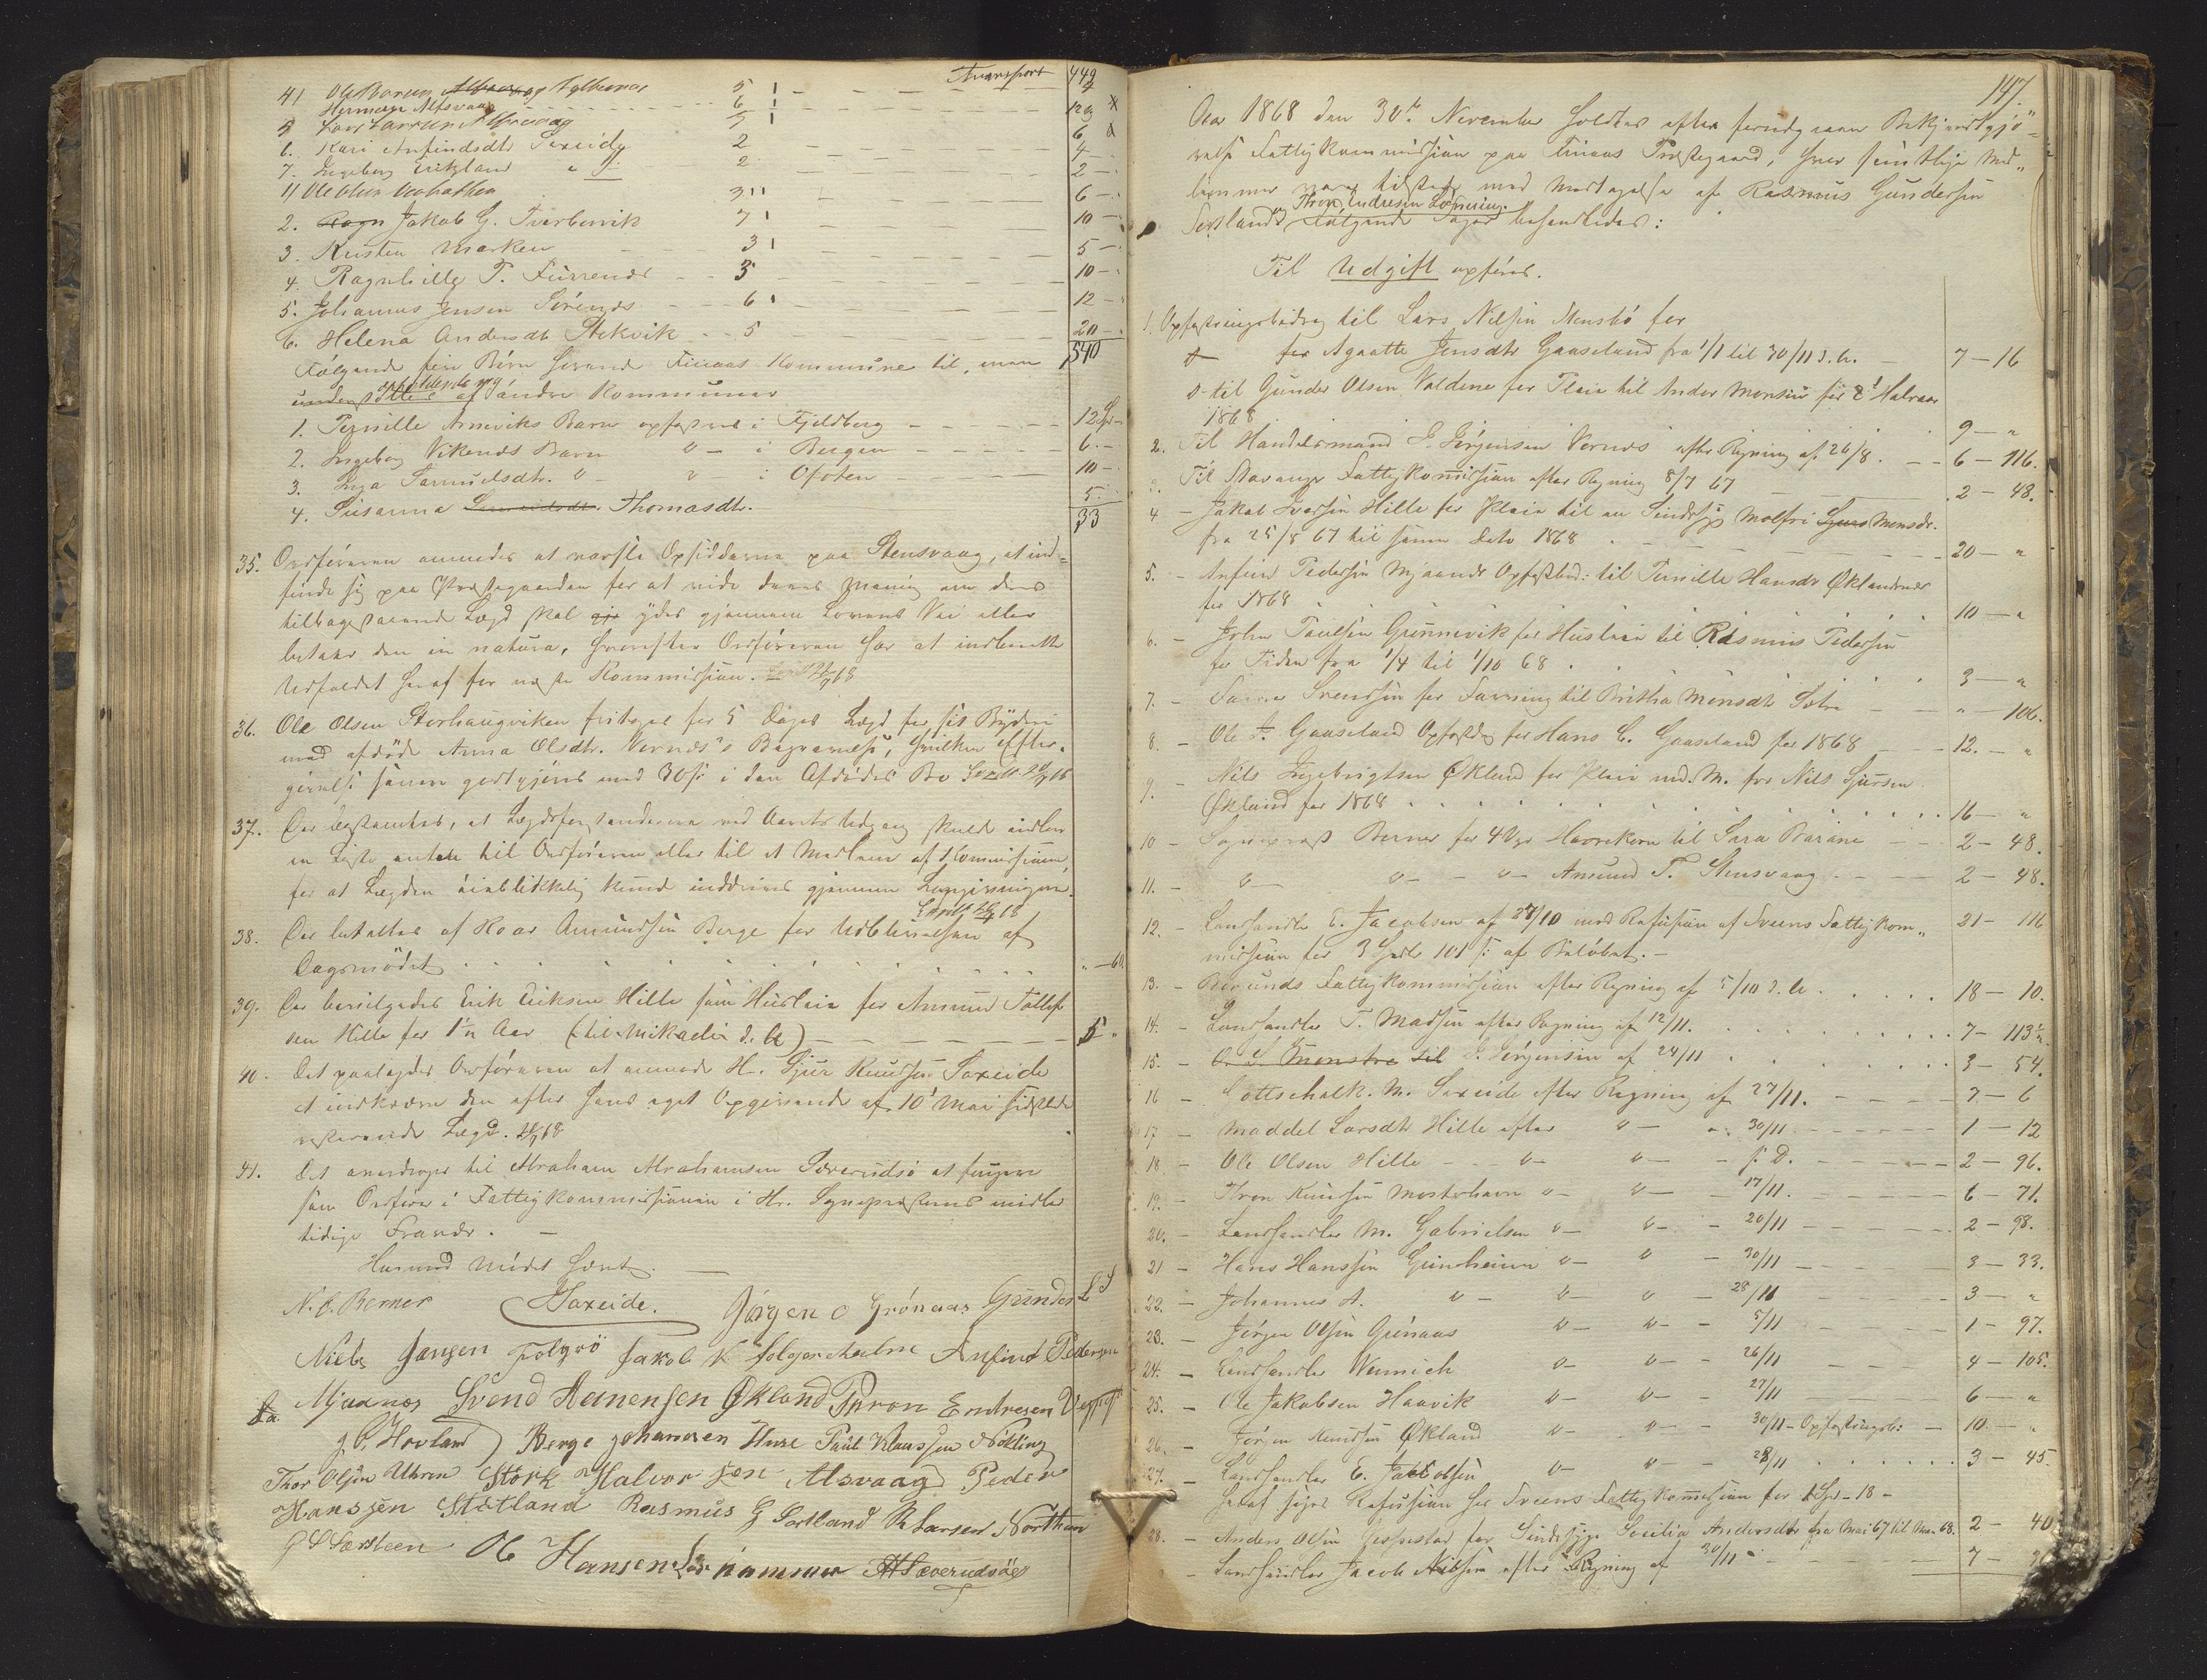 Transport 449
41 Ole Alsvaag Fylkenes 5
Herman Alsvaag 6 129
5 Lars Larsen Alsvaag 5 6
6. Kari Anfindsdtr Saxeide 2 4 -
7. Ingeborg Eitland 2 2 -
11 Ole Olsen 3 6 -
2. Jakob G. Tverborvik 7 10 -
3. Kristen Marken 3 5 -
4. Ragnhille P. Fürrenes 3 10 -
5. Johannes Jensen Sörenes 6 12 -
6. Helena Andersdtr Stekvik 5 20 -
540
Følgende fire Börn hörende Finaas Kommune til, men
underholdende af andre Kommuner
1. Pernille Arneviks Barn opfostres i Fjeldberg 12 Spd
2. Ingeborg Vikenes Barn - i Bergen 6. -
3. Inga Samuelsdtr. - i Ofoten 10 -
4. Susanna Thomasdtr. 5
33
35. Ordföreren anmodes at varsle Opsidderne paa Stensvaag, at ind-
finde sig paa Præstegaarden for at vide deres Mening om deres
tilbagestaaende Lægd skal ydes gjennem Lovens Vei eller
betale den in natura, hvorefter Ordföreren har at indberette
Udfaldet heraf for næste Kommission.
36. Ole Olsen Storhaugviken fritages for 5 Dages Lægd for sit Byderi
med afdöde Anna Olsdtr. Vernes's Begravelse, hvilken Efter-
givelse sammen godtgjöres med 30 s i den Afdödes Bo
37. Det bestemtes, at Lægdsforstanderne ved Aarets Udgang skulde indlevere
en Liste enten til Ordföreren eller til et Medlem af Kommissionen,
for at Lægden öieblikkelig kunde inddrives gjennem Lovgivningen.
38. Der betaltes af Roar Amundsen Berge for Udeblivelsen af
Dagsmödet - 60
39. Der bevilgedes Erik Eriksen Hille som Husleie for Amund Tollef-
sen Hille for 1/2 Aar (til Mikaeli d. A.) 5
40. Det paalagdes Ordföreren at anmode Hr. Sjur Knudsen Saxeide
at indkræve den efter hans eget Opgivende af 10' Mai sidstl.
resterende Lægd.
41. Det overdroges til Abraham Abrahamsen Sæverudsö at fungere
som Ordförer i Fattigkommissionen i Hr. Sognepræstens midler-
tidige Fravær. -
Hermed Mödet hævet. -
N. C. Berner Saxeide. Jörgen O Grönaas Gunder L S
Niels Jansen Folgerö Jakob K Folgerholm Anfind Pedersen
Mjaanes Svend Aamensen Økland Thron Endresen
J. O. Hovland Berge Johannesen Paul Klaussen Nökling
Thor Olsen Uhren Störk Halvorsen Alsvaag Peder
Hanssen Stötland Rasmus G Sortland R Larsen Northun
Ole Hansen A A Sæverudsöe
147.
Aar 1868 den 30te November holdtes efter forudgaaen Bekjendtgjö-
relse Fattigkommission paa Finaas Præstegaard, hvor samtlige Med-
lemmer vare tilstede med Undtagelse af Rasmus Gundersen
Thron Endresen Løvning.
Sortland og Følgende Sager behandledes:
Til Udgift opföres.
1. Opfostringsbidrag til Lars Nilsen Mensbö for
for Agaatte Jensdtr Gaaseland fra 1/1 til 30/11 d. A. 7 - 16
til Gunder Olsen Valdene for Pleie til Ander Monsen for 2' Halvaar
1868 9 - "
2. Til Handelsmand S. Jörgensen Vernes efter Regning af 26/8. 6 - 116.
3. Til Stavanger Fattigkommission efter Regning 8/7 67 2 - 48.
4 - Jakob Iversen Hille for Pleie til en Sindssyg Molfri Monsdr.
fra 25/8 67 til samme Dato 1868 20 - "
5. - Anfin Pedersen Mjaanes Opfostbid: til Pernille Hansdr Øklandnes
for 1868 10 - "
6. - John Paulsen Gunnevik for Husleie til Rasmus Pedersen
for Tiden fra 1/4 til 1/10 68 3 - "
7. - Svendsen for til Britha Monsdtr " - 106.
8. - Ole J. Gaaseland Opfostbg for Hans C. Gaaseland for 1868 12. - "
9. - Nils Ingebrigtsen Økland for Pleie m.M. for Nils Sjursen
Økland for 1868 16 - "
10 - Sognepræst Berner for 4 Vgr Havrekorn til Sara 2 - 48.
11. - Amund T. Stensvaag 2 - 48.
12. - Landhandler E. Jacobsen af 27/10 med Refusion af Sveens Fattigkom- 21 - 116
mission for 3 Spdlr 101 s: af Belöbet. -
13. - Fattigkommission efter Regning af 5/10 d. A. 18 - 10.
14. - Landhandler T. Madsen efter Regning af 12/11. 7 - 113½
15. - J. Jörgensen af 24/11 3 - 54.
16 - Gottschalk. M. Saxeide efter Regning af 27/11. 7 - 6
17 - Maddel Larsdtr Hille efter 30/11 1 - 12
18 - Ole Olsen Hille s. D. 2 - 96.
19. - Thron Knudsen Mosterhavn 17/11. 6 - 71.
20. - Landhandler M. Gabrielsen 20/11 2 - 98.
21 - Hans Hanssen Grindheim 30/11 3 - 33.
22. - Johannes A. 28/11 3 - "
23. - Jörgen Olsen Grönaas 5/11 1 - 97.
24. - Landhandler Wernich 26/11 4 - 105.
25. - Ole Jakobsen Haavik 27/11 6 - "
26. - Jörgen Knudsen Økland 30/11 - Opfostringsb: 10 - "
27. - Landhandler E. Jakobsen 28/11 3 - 45.
heraf söges Refusion hos Sveens Fattigkommission for 1 Spd - 18 -
28. - Anders Olsen for Sindssyge Secilia Andersdtr fra Mai 67 til Mai 68. 2 - 40
- Landhandler Jacob Nilsen efter Regning af 30/11 7 -